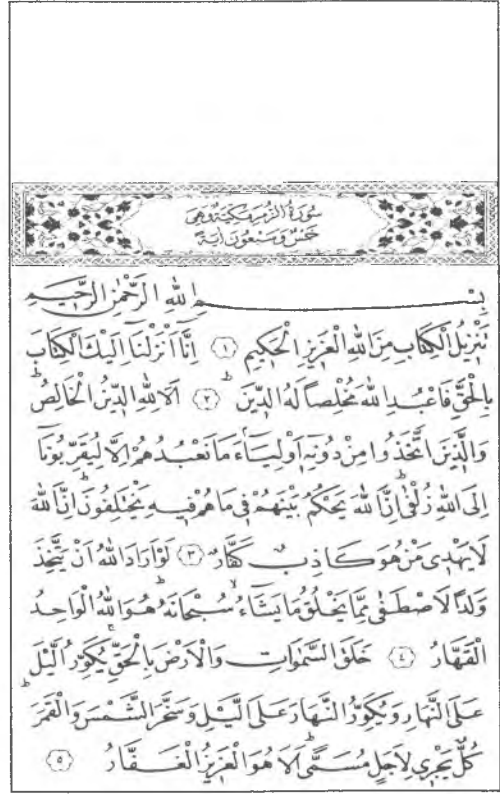 سُورَةُ الزُّمَرِ مَكِّيَّةٌ وَهِيَ
خَمْسٌ وَسَبْعُونَ اٰيَةً
بِسْمِ اللهِ الرَّحْمٰنِ الرَّحِيمِ
تَنْزِيلُ الْكِتَابِ مِنَ اللهِ الْعَزِيزِ الْحَكِيمِ ﴿١﴾ اِنَّٓا اَنْزَلْنَٓا اِلَيْكَ الْكِتَابَ
بِالْحَقِّ فَاعْبُدِ اللهَ مُخْلِصاً لَهُ الدِّينَۜ ﴿٢﴾ اَلَا لِلّٰهِ الدِّينُ الْخَالِصُۜ
وَالَّذِينَ اتَّخَذُوا مِنْ دُونِهِٓ اَوْلِيَٓاءَ مَا نَعْبُدُهُمْ اِلَّا لِيُقَرِّبُونَٓا
اِلَى اللهِ زُلْفٰىۜ اِنَّ اللهَ يَحْكُمُ بَيْنَهُمْ فِي مَا هُمْ فِيهِ يَخْتَلِفُونَۜ اِنَّ اللهَ
لَا يَهْدِي مَنْ هُوَ كَاذِبٌ كَفَّارٌ ﴿٣﴾ لَوْ اَرَادَ اللهُ اَنْ يَتَّخِذَ
وَلَداً لَاصْطَفٰى مِمَّا يَخْلُقُ مَا يَشَٓاءُۙ سُبْحَانَهُۜ هُوَ اللهُ الْوَاحِدُ
الْقَهَّارُ ﴿٤﴾ خَلَقَ السَّمٰوَاتِ وَالْاَرْضَ بِالْحَقِّۚ يُكَوِّرُ الَّيْلَ
عَلَى النَّهَارِ وَيُكَوِّرُ النَّهَارَ عَلَى الَّيْلِ وَسَخَّرَ الشَّمْسَ وَالْقَمَرَۜ
كُلٌّ يَجْرِي لِاَجَلٍ مُسَمًّىۜ اَلَا هُوَ الْعَزِيزُ الْغَفَّارُ ﴿٥﴾